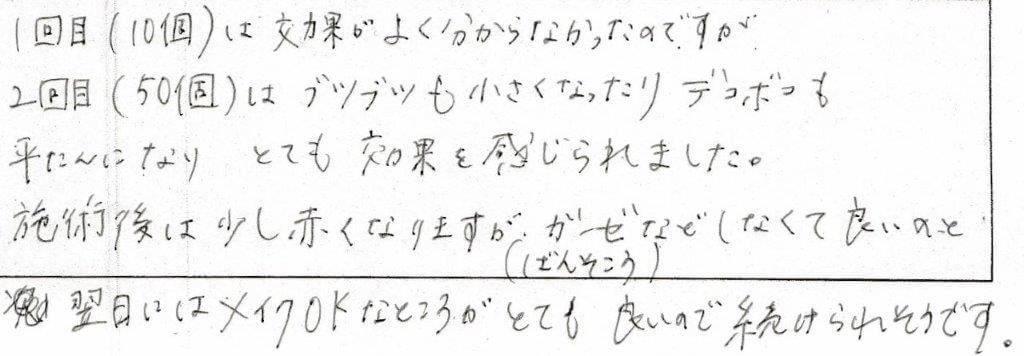 1回目(10個)は効果がよく分からなかったのですが
2回目(50個)はブツブツも小さくなったりデコボコも
平たんになり とても効果を感じられました。
施術後は少し赤くなりますが、ガーゼなどしなくて良いのと
(ばんそこう)
翌日にはメイクOKなところがとても良いので続けられそうです。